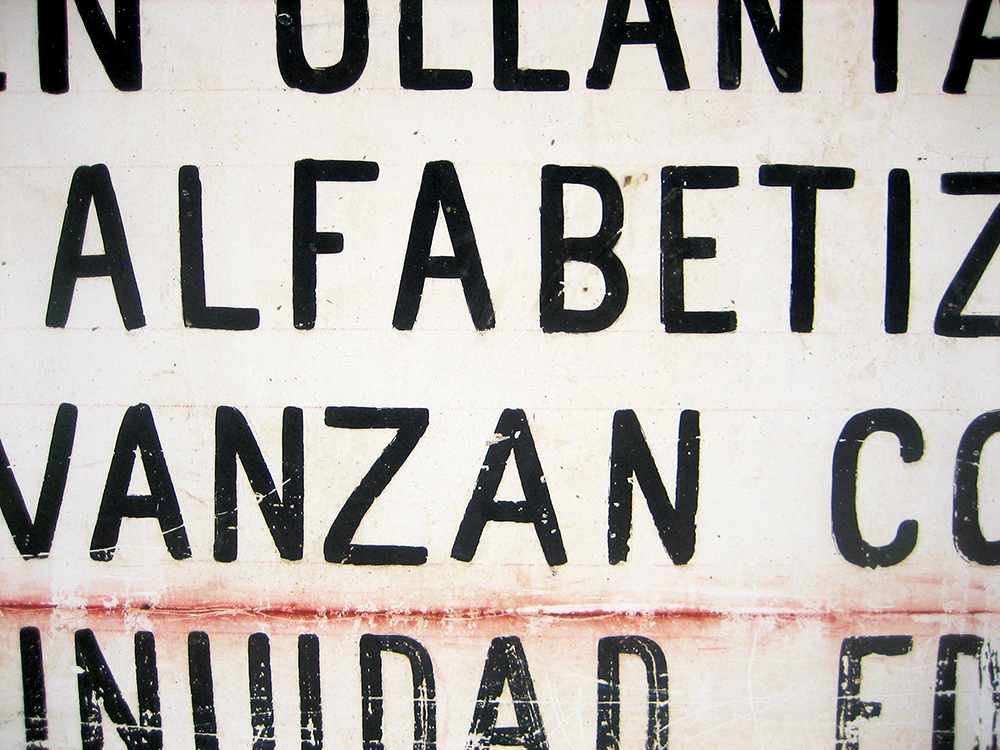 EN OLLANTA
ALFABETIZ
VANZAN CO
INUIDAD ED